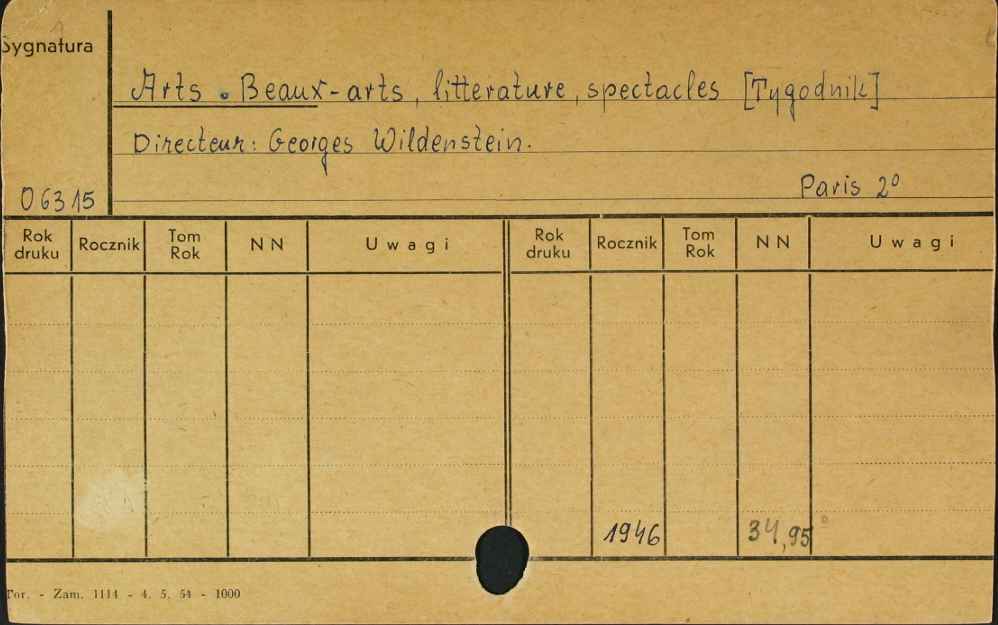 Sygnatura
Arts. Beaux-arts, litterature, spectacles [Tygodnik]
Directeur: Georges Wildenstein.
Paris 2º
06315
Rok druku Rocznik Tom Rok NN Uwagi Rok druku Rocznik Tom Rok NN Uwagi
1946 34,95
Tor. - Zam. 1114 - 4. 5. 54 - 1000